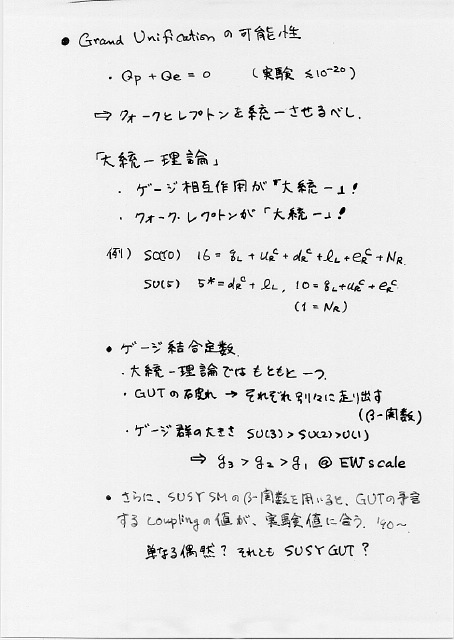 • Grand Unification の可能性
・ Qp + Qe = 0 (実験 ≤10⁻²⁰)
⇨ クォークとレプトンを統一させるべし.
「大統一理論」
・ ゲージ相互作用が「大統一」!
・ クォーク・レプトンが「大統一」!
例) SO(10) 16 = q_L + u_R^c + d_R^c + l_L + e_R^c + N_R
SU(5) 5* = d_R^c + l_L, 10 = q_L + u_R^c + e_R^c
(1 = N_R)
• ゲージ結合定数.
・大統一理論ではもともと一つ.
・GUTの破れ → それぞれ別々に走り出す
(β-関数)
・ゲージ群の大きさ SU(3) > SU(2) > U(1)
⇨ g₃ > g₂ > g₁ @ EW scale
• さらに、SUSY SMのβ-関数を用いると、GUTの予言
する couplingの値が、実験値に合う. '90~
単なる偶然? それとも SUSY GUT ?